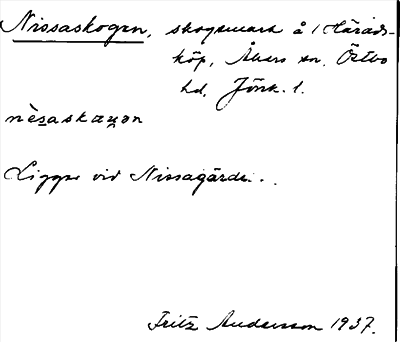 Nissaskogen, skogsmark å / Härads-
köp, Åkers sn. Östbo
hd, Jönk. l.
nèsaskaɣən
Ligger vid Nissagärde.
Fritz Andersson 1937.